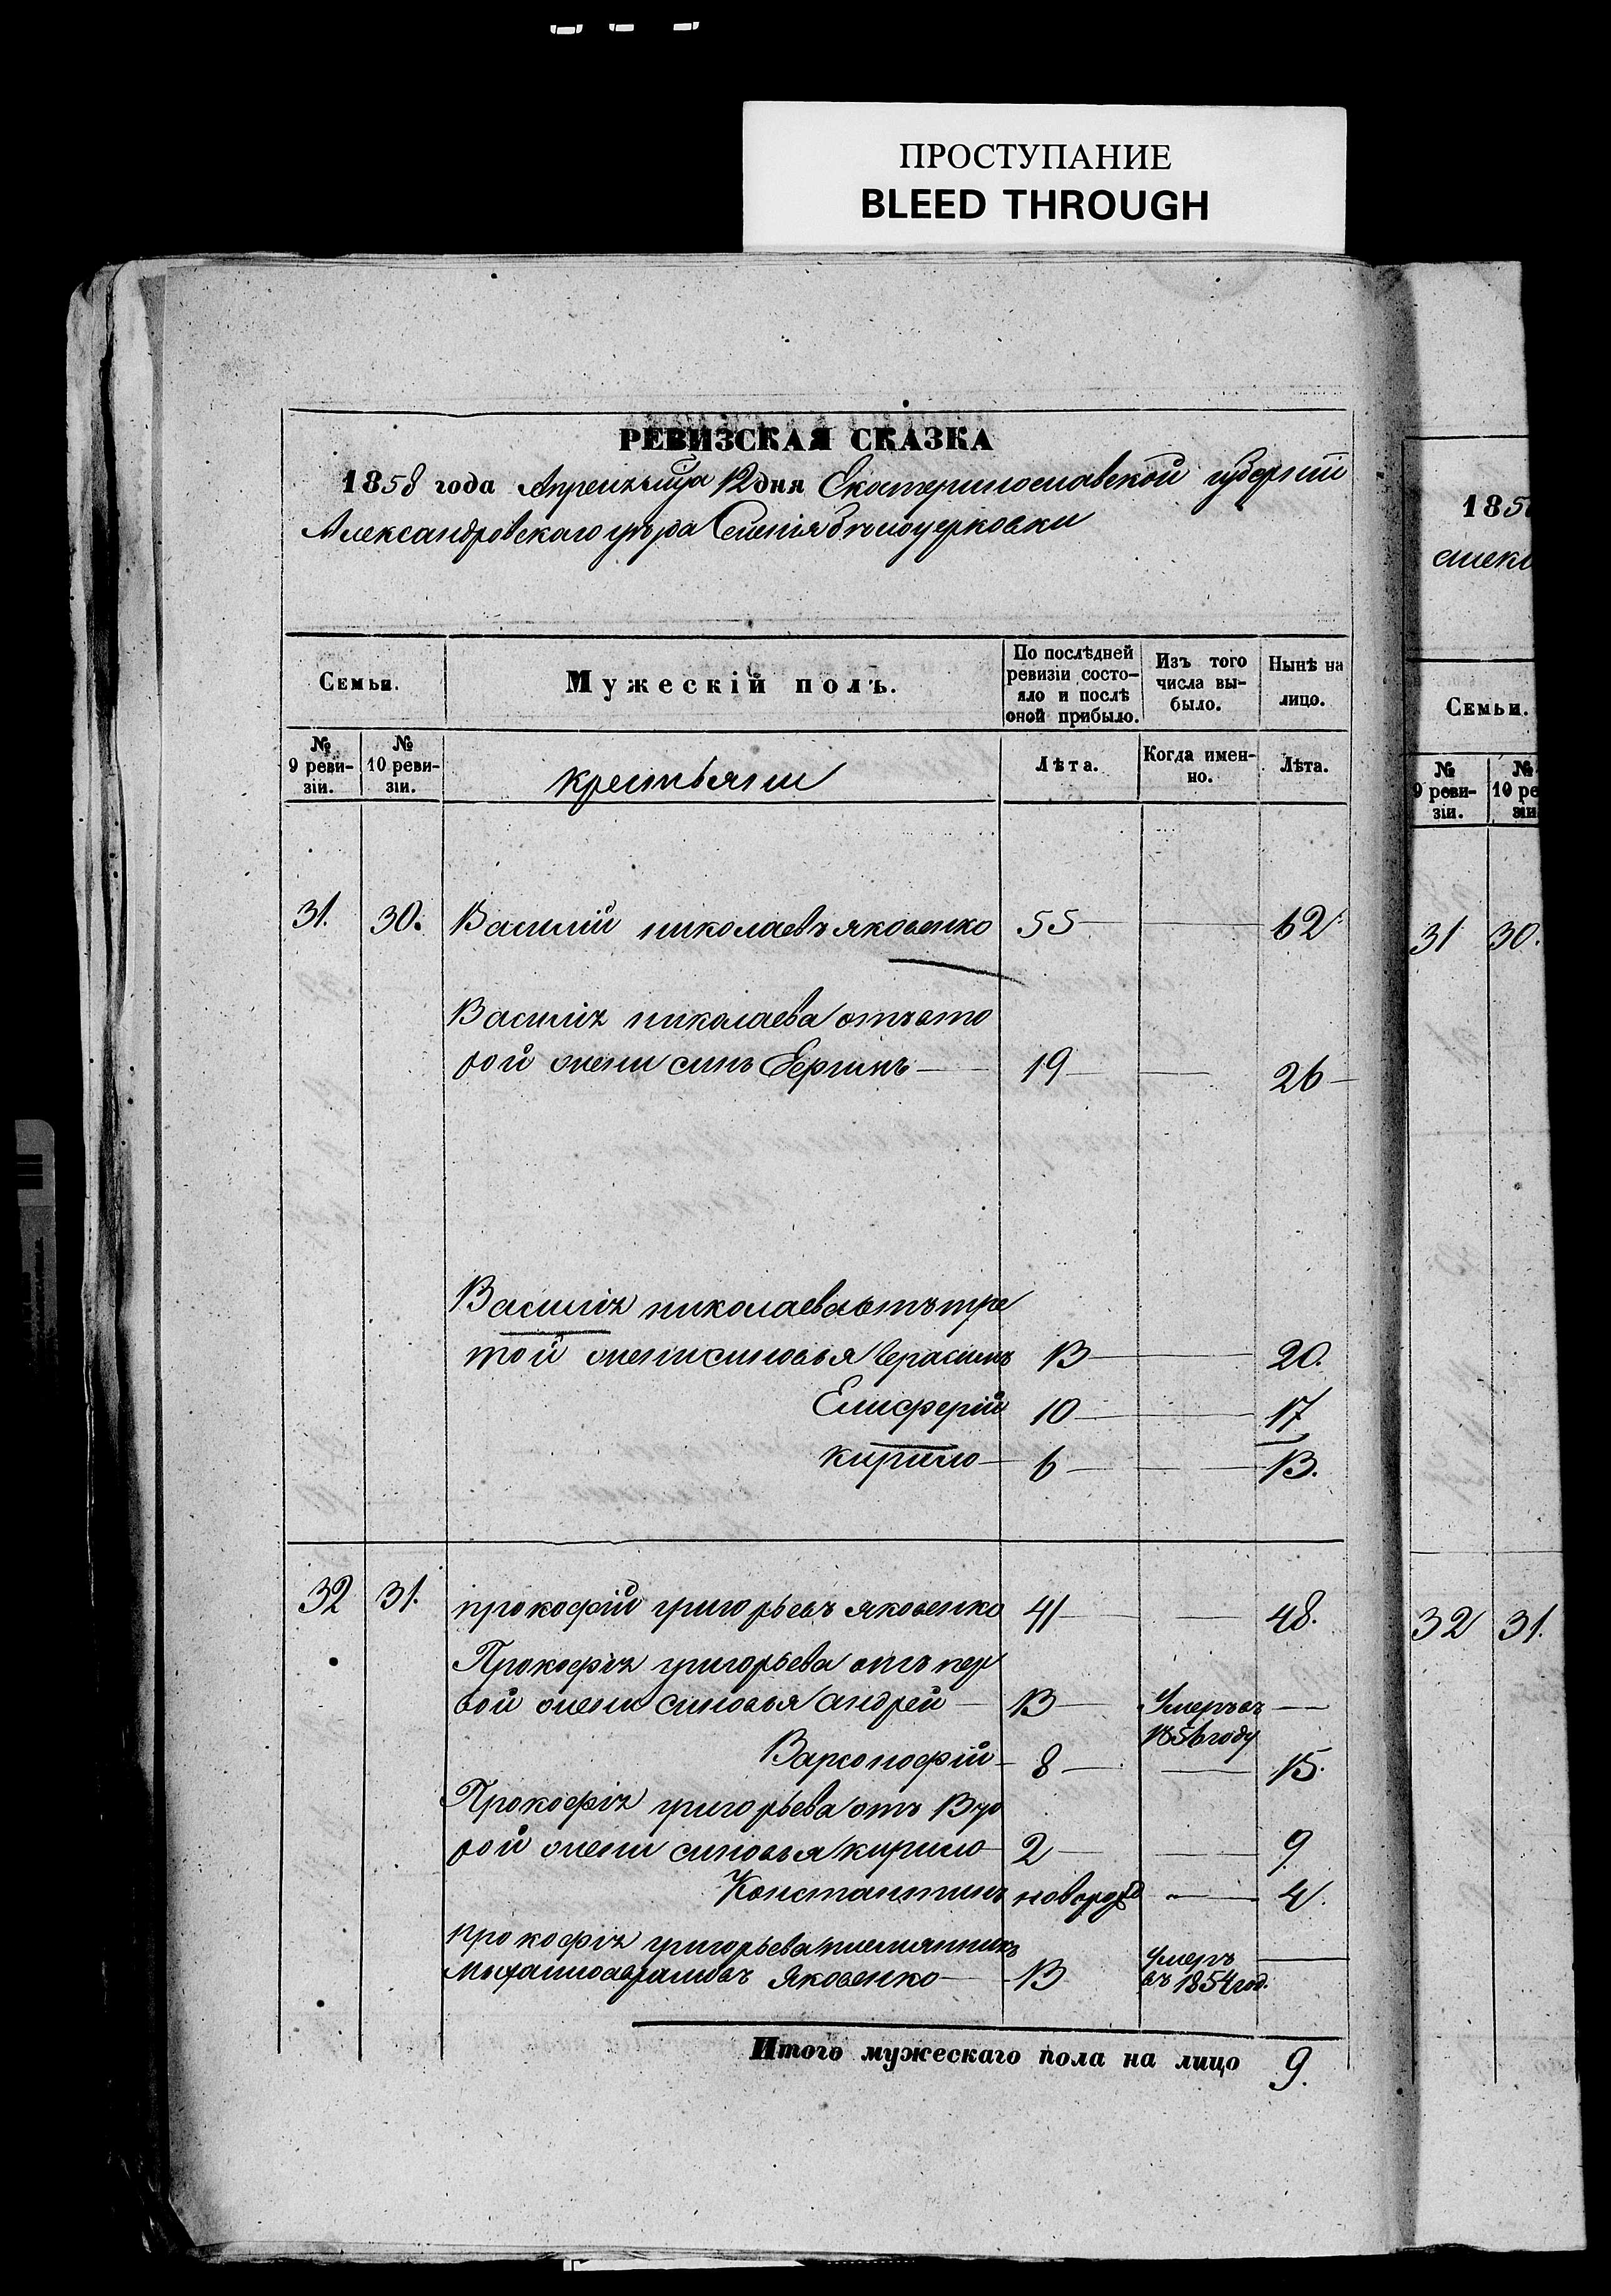 ПРОСТУПАНИЕ
BLEED THROUGH
РЕВИЗСКАЯ СКАЗКА
1858 года Апреля мца 12 дня Екатеринославской губернии
Александровскаго уезда Селения Белоцерковки
Семьи.
Мужескій полъ.
По послѣдней ревизіи состо-
яло и послѣ оной прибыло.
Изъ того числа вы-
было.
Нынѣ на лицо.
№ 9 реви-
зіи.
№ 10 реви-
зіи.
крестьяни
Лѣта.
Когда имен-
но.
Лѣта.
31. 30. Василий николаевъ яковенко 55 — — 62
Василія николаева отъ вто
рой жени синъ 19 — — 26
Василія николаева отъ тре
той жени синовья Герасимъ 13 — — 20.
Елисферій 10 — — 17
кирило — 6 — — 13.
32 31. прокофий григорьевъ яковенко 41 — — 48.
Прокофія григорьева отъ пер
вой жени синовья андрей — 13 — Умеръ въ —
1856 году
Варфоломей — 8 — — 15.
Прокофія григорьева отъ Вто
рой жени синовья кирило — 2 — — 9
Константинъ новорожд — 4.
прокофія григорьева племянникъ
яковенко — 13 Умеръ —
въ 1854 год.
Итого мужескаго пола на лицо 9.
185
алекс
Семьи.
№ 9 реви-
зіи.
№ 10 ре
зіи
31 30.
32 31.